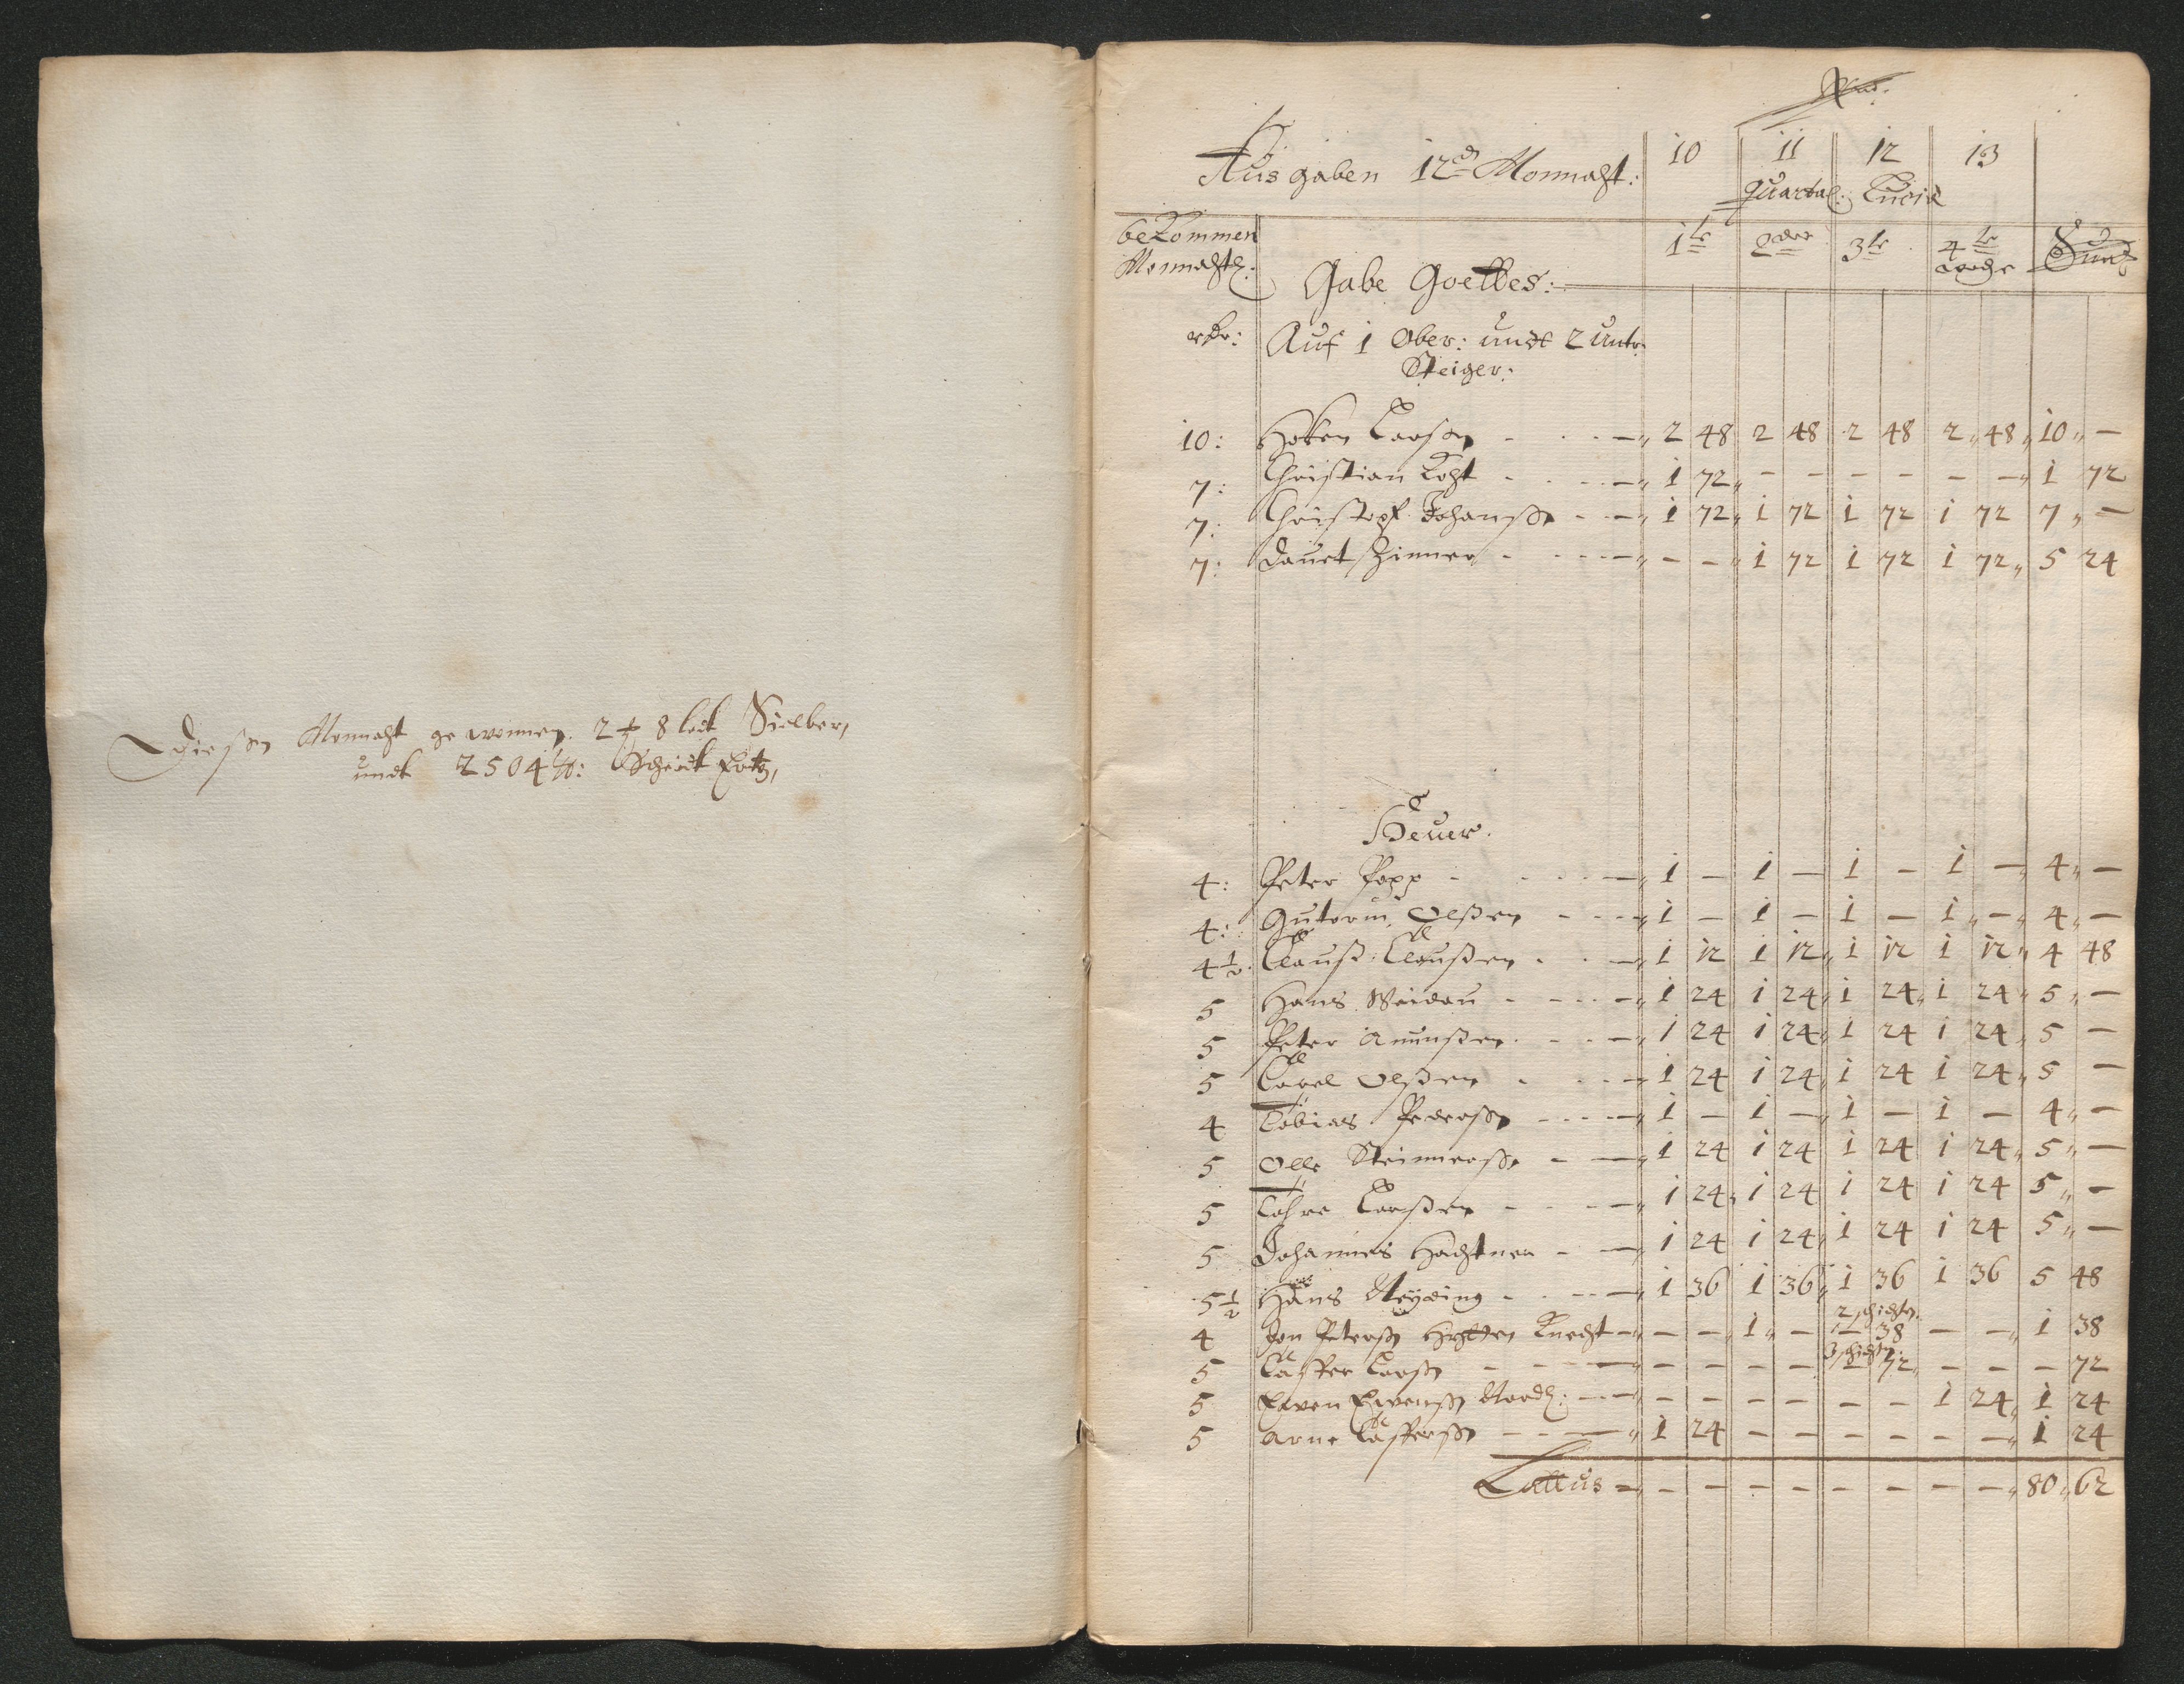 Dießen Monnaht gewonnen. 2 8 lott Sielber,
undt 2504 ℔: Scheidt Ertz,
Ausgaben 12 Monnaht:
10 11 12 13
Quartal: Lucie
bekommen
Monnahtl:
1te 2der 3te 4te
woche
Sum̅
Gabe Gottes:
rdr: Auf 1 Ober: undt 2 Untr
Steiger:
10: Haken Larßen - - - 2 48 2 48 2 48 2 48 10 -
7: Christian Koht - - - 1 72 - - - - - - 1 72
7: Christopf Johanßen - - 1 72 1 72 1 72 1 72 7 -
7: Davet Zimmer - - - - - 1 72 1 72 1 72 5 24
Heuer.
4: Peter Popp - - - 1 - 1 - 1 - 1 - 4 -
4: Guttorm Olßen - - - 1 - 1 - 1 - 1 - 4 -
4½: Clauß Claußen - - 1 12 1 12 1 12 1 12 4 48
5 Hans Weidau - - - 1 24 1 24 1 24 1 24 5 -
5 Peter Amunßen - - - 1 24 1 24 1 24 1 24 5 -
5 Carel Olßen - - - 1 24 1 24 1 24 1 24 5 -
4 Tobias Pederßen - - - 1 - 1 - 1 - 1 - 4 -
5 Olle Steinnerßen - - 1 24 1 24 1 24 1 24 5 -
5 Tohre Larßen - - - 1 24 1 24 1 24 1 24 5 -
5 Johannes Hachtner - - 1 24 1 24 1 24 1 24 5 -
5½ Hans Meyding - - - 1 36 1 36 1 36 1 36 5 48
2 schichten
4 Jon Peterßen Hytten Knecht - - - 1 - - 38 - - 1 38
3 schichten
5 Casper Larßen - - - - - - - - 72 - - - 72
5 Ewen Ewenßen Nordl: - - - - - - - - 1 24 1 24
5 Arne Casperßen - - - 1 24 - - - - - - 1 24
Lattus - - - - - - - - - 80 62